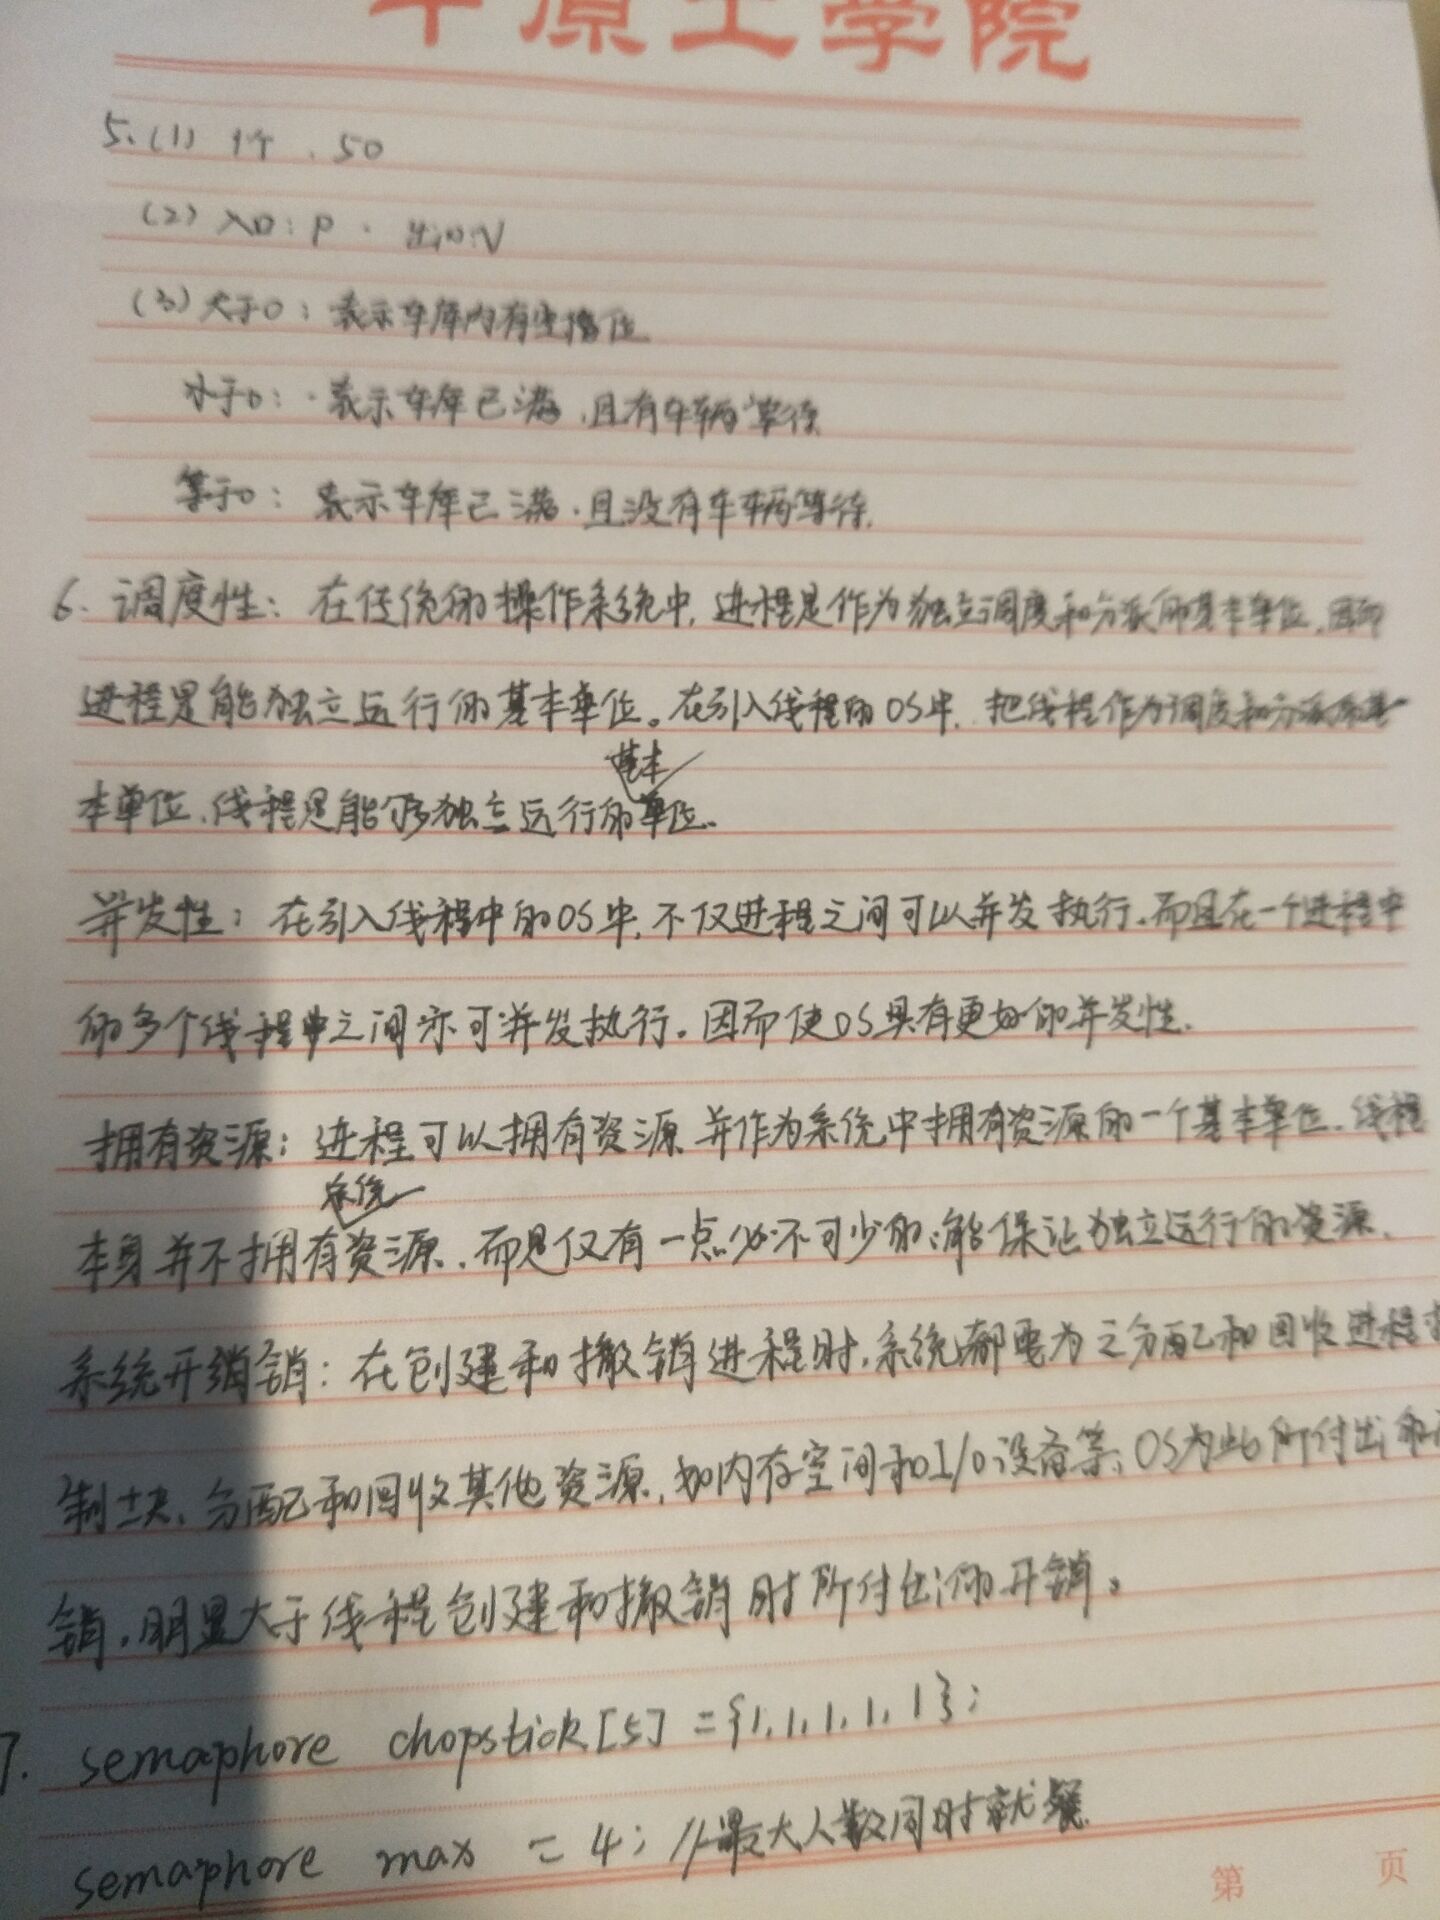 中原工学院
5.(1) 1个.50
(2)入口:P. 出口:V
(3)大于0:表示车库内有空位
小于0:表示车库已满,且有车辆等待
等于0:表示车库已满.且没有车辆等待.
6.调度性:在传统的操作系统中,进程是作为独立调度和分派的基本单位,因而
进程是能独立运行的基本单位。在引入线程的OS中,把线程作为调度和分派的基
本单位,线程是能够独立运行的基本单位.
并发性:在引入线程中的OS中,不仅进程之间可以并发执行,而且在一个进程中
的多个线程中之间亦可并发执行。因而使OS具有更好的并发性.
拥有资源:进程可以拥有资源并作为系统中拥有资源的一个基本单位.线程
本身并不拥有系统资源.而是仅有一点必不可少的,能保证独立运行的资源.
系统开销:在创建和撤销进程时,系统都要为之分配和回收进程
制块、分配和回收其他资源,如内存空间和I/O设备等,OS为此所付出的
销,明显大于线程创建和撤销时所付出的开销。
7. semaphore chopstick[5]={1,1,1,1,1};
semaphore max = 4; //最大人数同时就餐
第 页